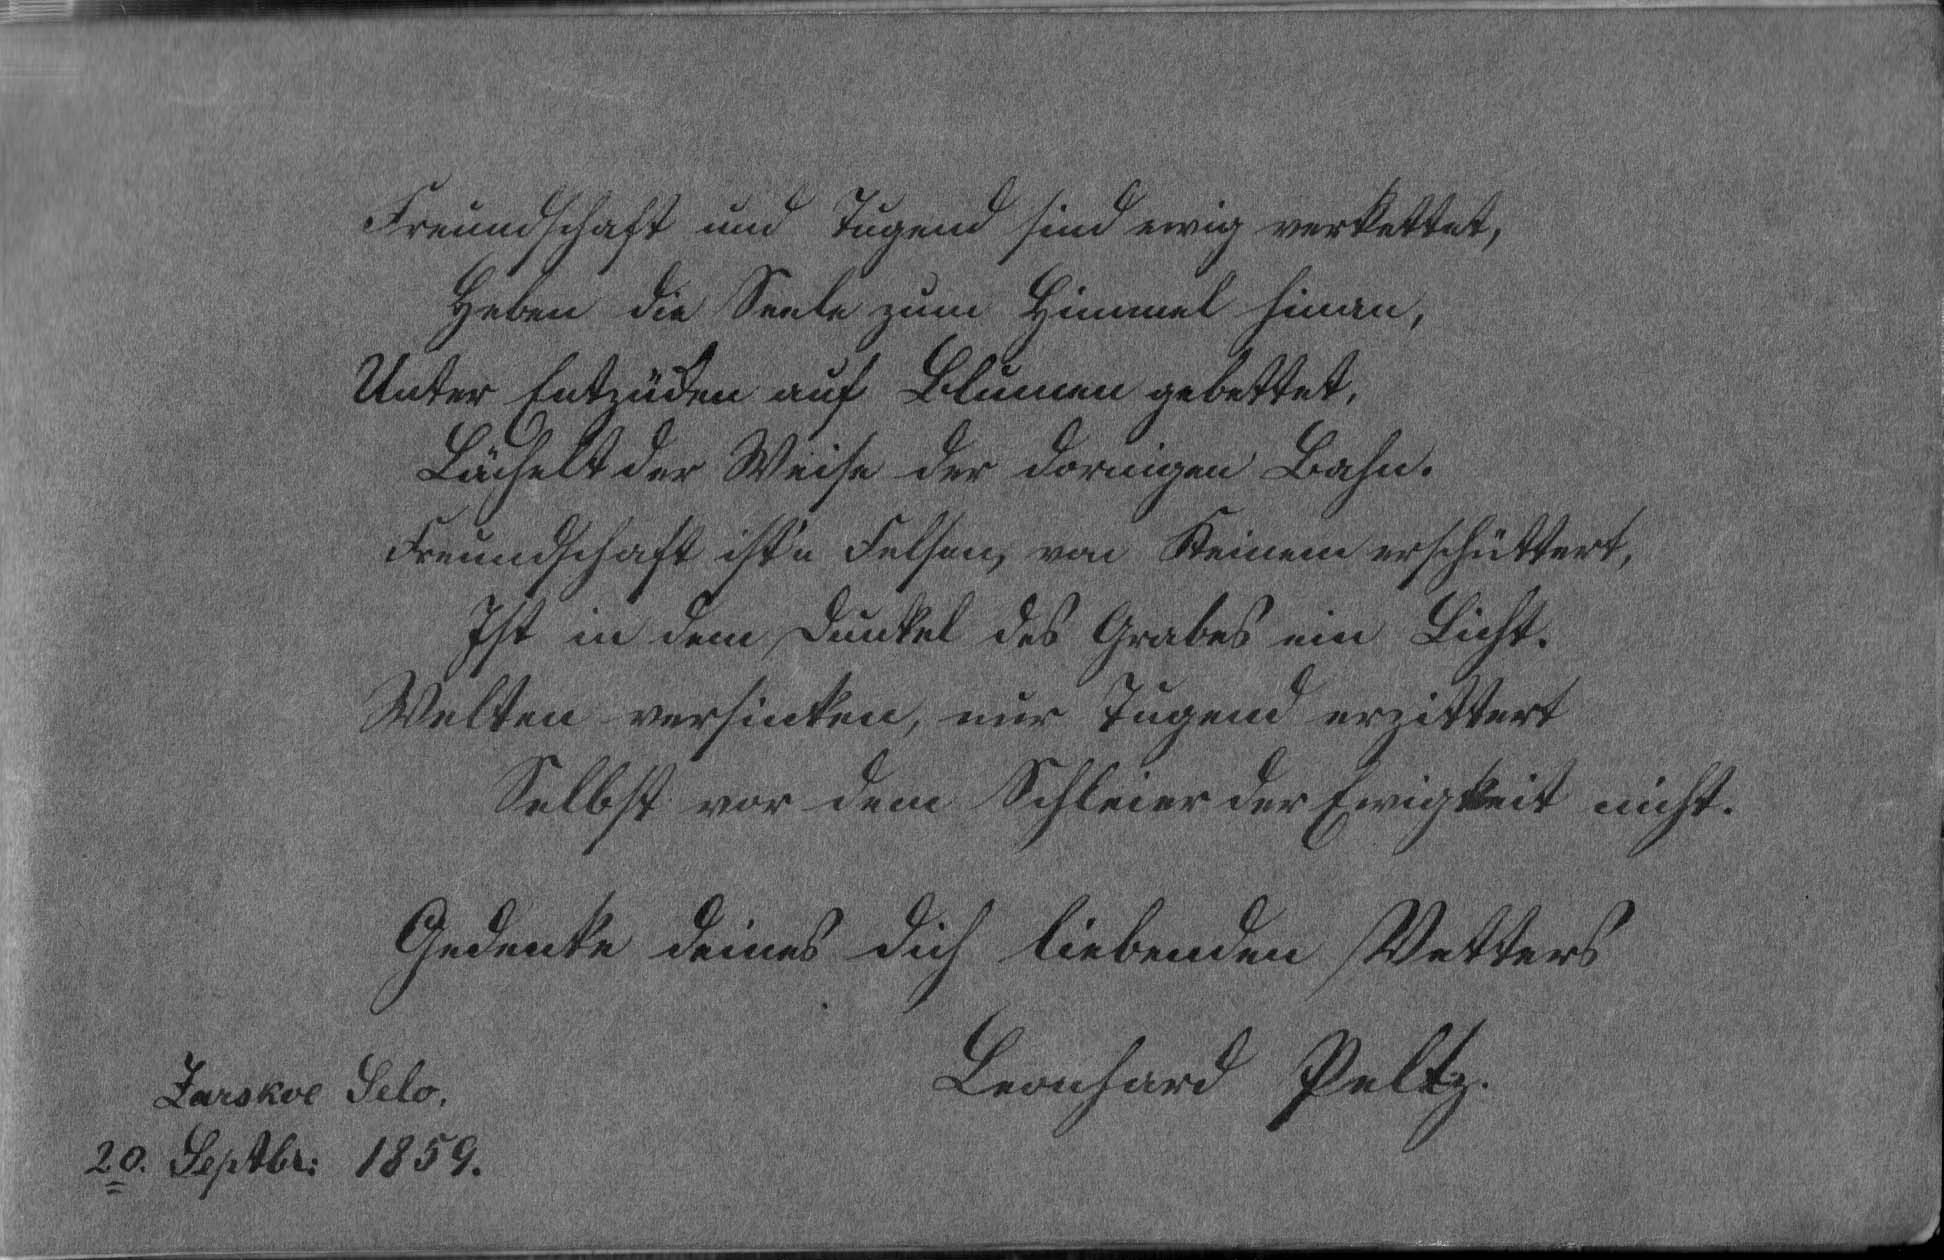 Freundschaft und Tugend sind ewig verkettet,
Heben die Seele zum Himmel hinan,
Unter Entzücken auf Blumen gebettet,
Lächelt der Weise der dornigen Bahn.
Freundschaft ist'n Felsen, von Keinem erschüttert,
Ist in dem Dunkel des Grabes ein Licht.
Welten versinken, nur Tugend erzittert
Selbst vor dem Schleier der Ewigkeit nicht.
Gedenke deines dich liebenden Vetters
Leonhard Peltz.
Zarskoe Selo,
20. Septbr: 1859.